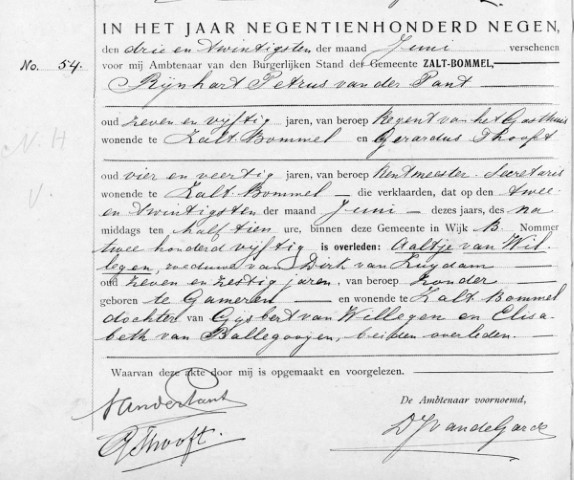 IN HET JAAR NEGENTIENHONDERD NEGEN,
No. 54.
den drie en twintigsten der maand Juni verschenen
voor mij Ambtenaar van den Burgerlijken Stand der Gemeente ZALT-BOMMEL,
Rijnhart Petrus van der Pant
oud zeven en vijftig jaren, van beroep Regent van het Gasthuis
wonende te Zalt Bommel en Gerardus Thooft
N. H
oud vier en veertig jaren, van beroep Rentmeester-Secretaris
wonende te Zalt-Bommel die verklaarden, dat op den twee
V.
en twintigsten der maand Juni dezes jaars, des na
middags ten half tien ure, binnen deze Gemeente in Wijk B. Nommer
twee honderd vijftig is overleden: Aaltje van Wil-
legen, weduwe van Dirk van Zuydam
oud zeven en zestig jaren, van beroep zonder
geboren te Gameren en wonende te Zalt Bommel
dochter van Gijsbert van Willegen en Elisa-
beth van Ballegooijen, beiden overleden.
Waarvan deze akte door mij is opgemaakt en voorgelezen.
VanderPant
De Ambtenaar voornoemd,
GThooft.
DJvandeGarde